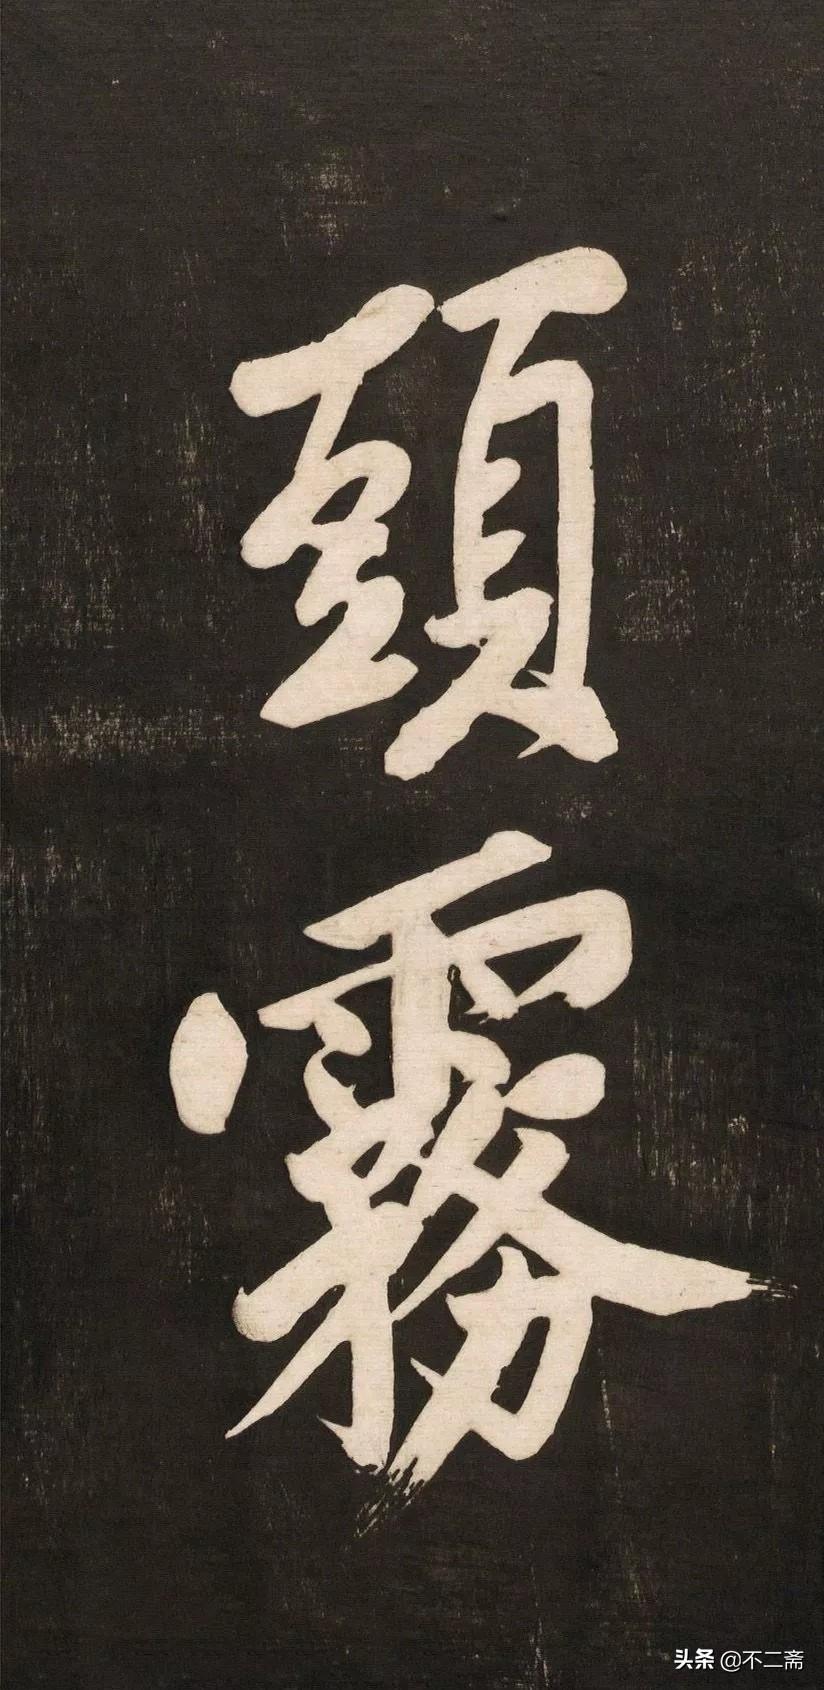 頭
霧
头条 @不二斋